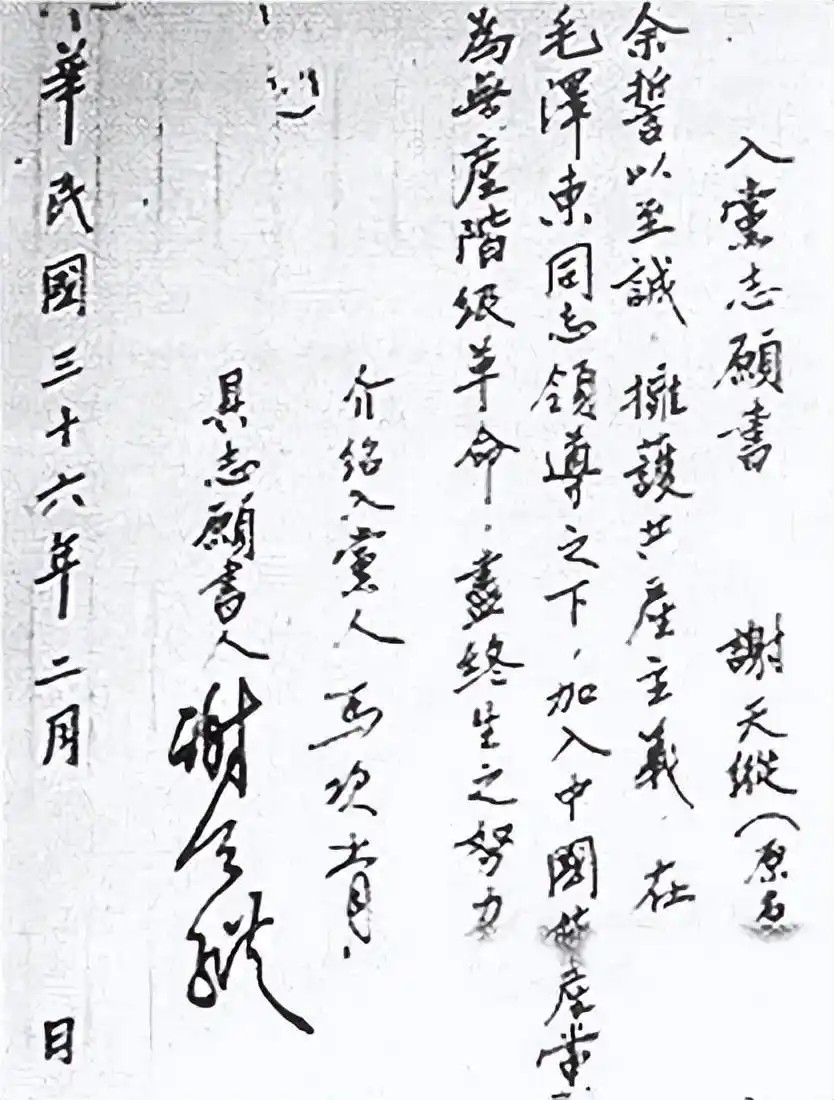 入黨志願書 謝天縱（原名
余誓以至誠，擁護共產主義，在
毛澤東同志領導之下，加入中國共產黨
為無產階級革命，盡終生之努力
介紹入黨人 馬次青
具志願書人 謝天縱
華民國三十六年二月 日